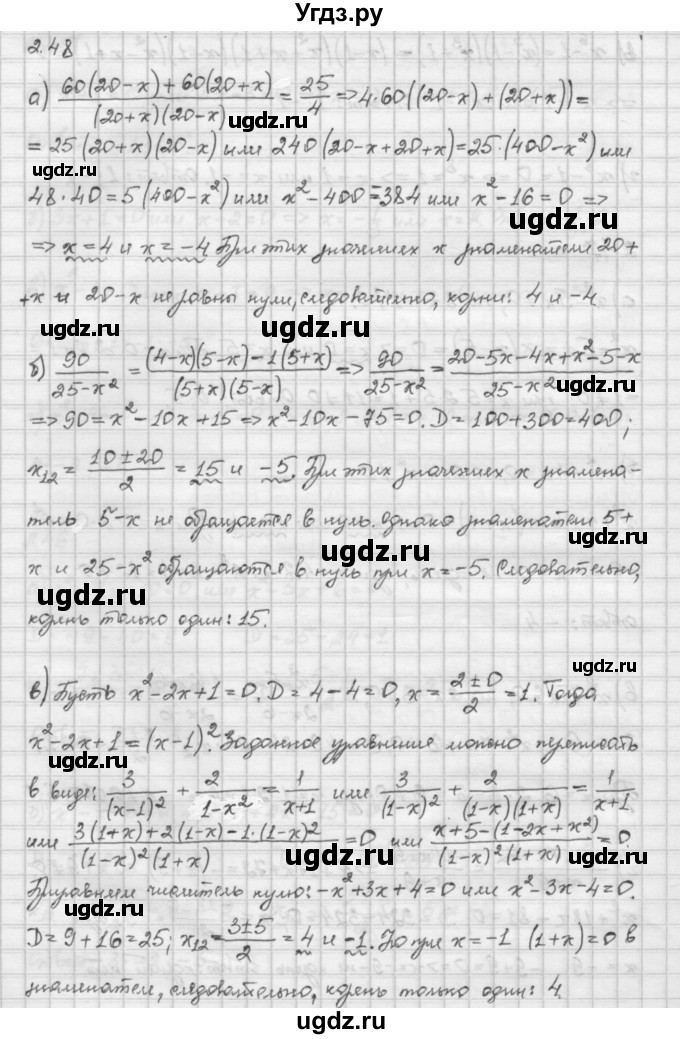 Угдз.ру
2.48
а) (60(20-x)+60(20+x))/((20+x)(20-x)) = 25/4 => 4·60((20-x)+(20+x))=
ugdz.ru
= 25(20+x)(20-x) или 240(20-x+20+x)=25·(400-x²) или
ugdz.ru ugdz.ru
48·40=5(400-x²) или x²-400=384 или x²-16=0 =>
ugdz.ru
=> x=4 и x=-4. При этих значениях x знаменатели 20+
+x и 20-x не равны нули, следовательно, корни: 4 и -4.
ugdz.ru
б) 90/(25-x²) = ((4-x)(5-x)-1(5+x))/((5+x)(5-x)) => 90/(25-x²) = (20-5x-4x+x²-5-x)/(25-x²)
ugdz.ru
=> 90=x²-10x+15 => x²-10x-75=0. D=100+300=400;
ugdz.ru
x₁₂ = (10±20)/2 = 15 и -5. При этих значениях x знамена-
тель 5-x не обращается в нуль. однако знаменатели 5+
ugdz.ru
x и 25-x² обращаются в нуль при x=-5. Следовательно,
ugdz.ru
корень только один: 15.
ugdz.ru
в) Пусть x²-2x+1=0. D=4-4=0, x=(2±0)/2=1. Тогда
ugdz.ru
x²-2x+1=(x-1)². Заданное уравнение можно переписать
в виде: 3/(x-1)² + 2/(1-x²) = 1/(x+1) или 3/(1-x)² + 2/((1-x)(1+x)) = 1/(x+1)
или (3(1+x)+2(1-x)-1·(1-x)²)/((1-x)²(1+x)) = 0 или (x+5-(1-2x+x²))/((1-x)²(1+x)) = 0.
ugdz.ru ugdz.ru
Приравняем числитель нулю: -x²+3x+4=0 или x²-3x-4=0.
ugdz.ru
D=9+16=25; x₁₂=(3±5)/2=4 и -1. Но при x=-1 (1+x)=0 в
ugdz.ru
знаменател, следовательно, корень только один: 4.
ugdz.ru